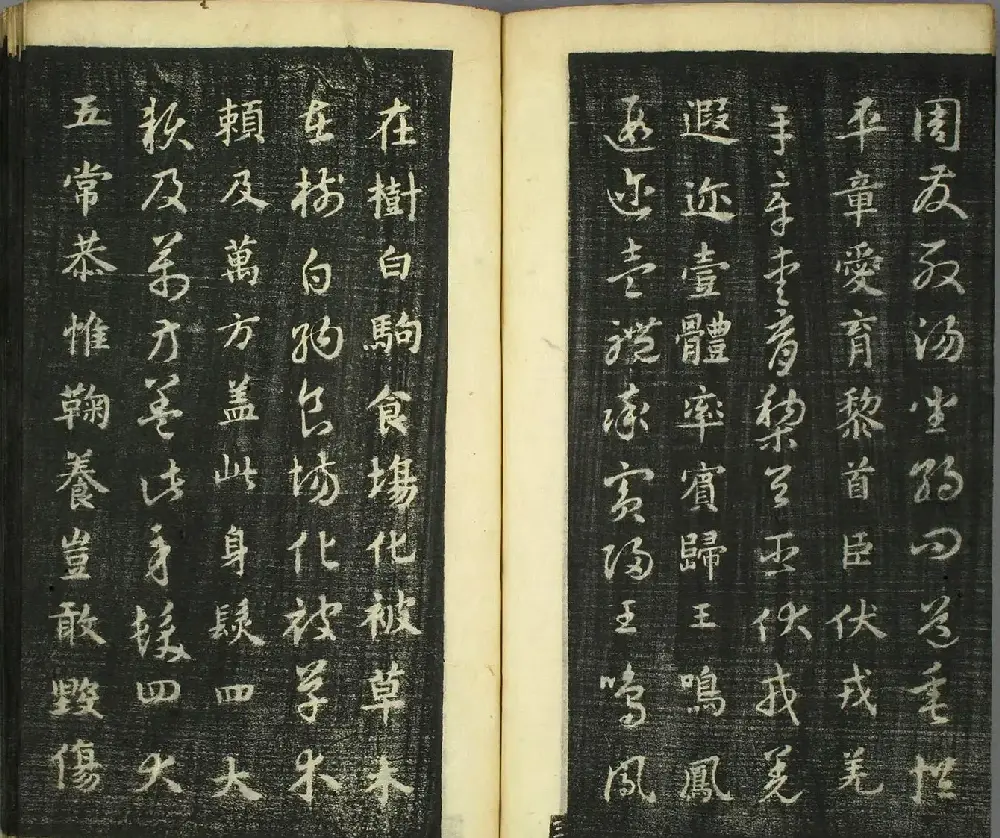 周發殷湯坐朝問道垂拱
平章愛育黎首臣伏戎羌
平章愛育黎首臣伏戎羌
遐迩壹體率賓歸王鳴鳳
遐迩壹體率賓歸王鳴鳳
三
在樹白駒食場化被草木
在樹白駒食場化被草木
賴及萬方盖此身髮四大
賴及萬方盖此身髮四大
五常恭惟鞠養豈敢毀傷